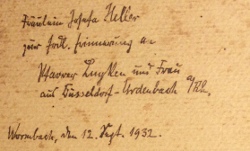 Fräulein Josefa Keller
zur frdl. Erinnerung an
Pfarrer und Frau
aus Düsseldorf-Urdenbach a/Rh.
Wormbach, den 12. Sept. 1932.